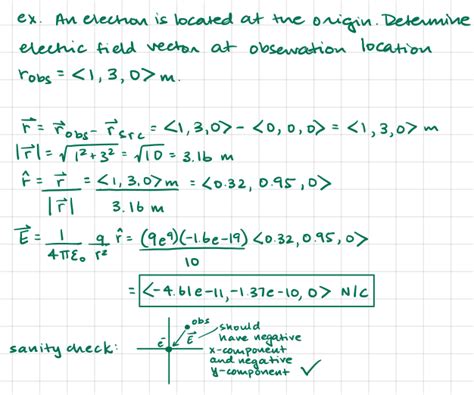 ex. An electron is located at the origin. Determine
electric field vector at observation location
r_obs = <1, 3, 0> m.
r⃗ = r⃗_obs - r⃗_src = <1,3,0> - <0,0,0> = <1,3,0> m
|r⃗| = √(1²+3²) = √10 = 3.16 m
r̂ = r⃗/|r⃗| = <1,3,0>m/3.16 m = <0.32, 0.95, 0>
E⃗ = 1/(4πε₀) q/r² r̂ = (9e9)(-1.6e-19)/10 <0.32, 0.95, 0>
= <-4.61e-11, -1.37e-10, 0> N/C
sanity check:
obs
E⃗
e⁻
should
have negative
x-component
and negative
y-component ✓